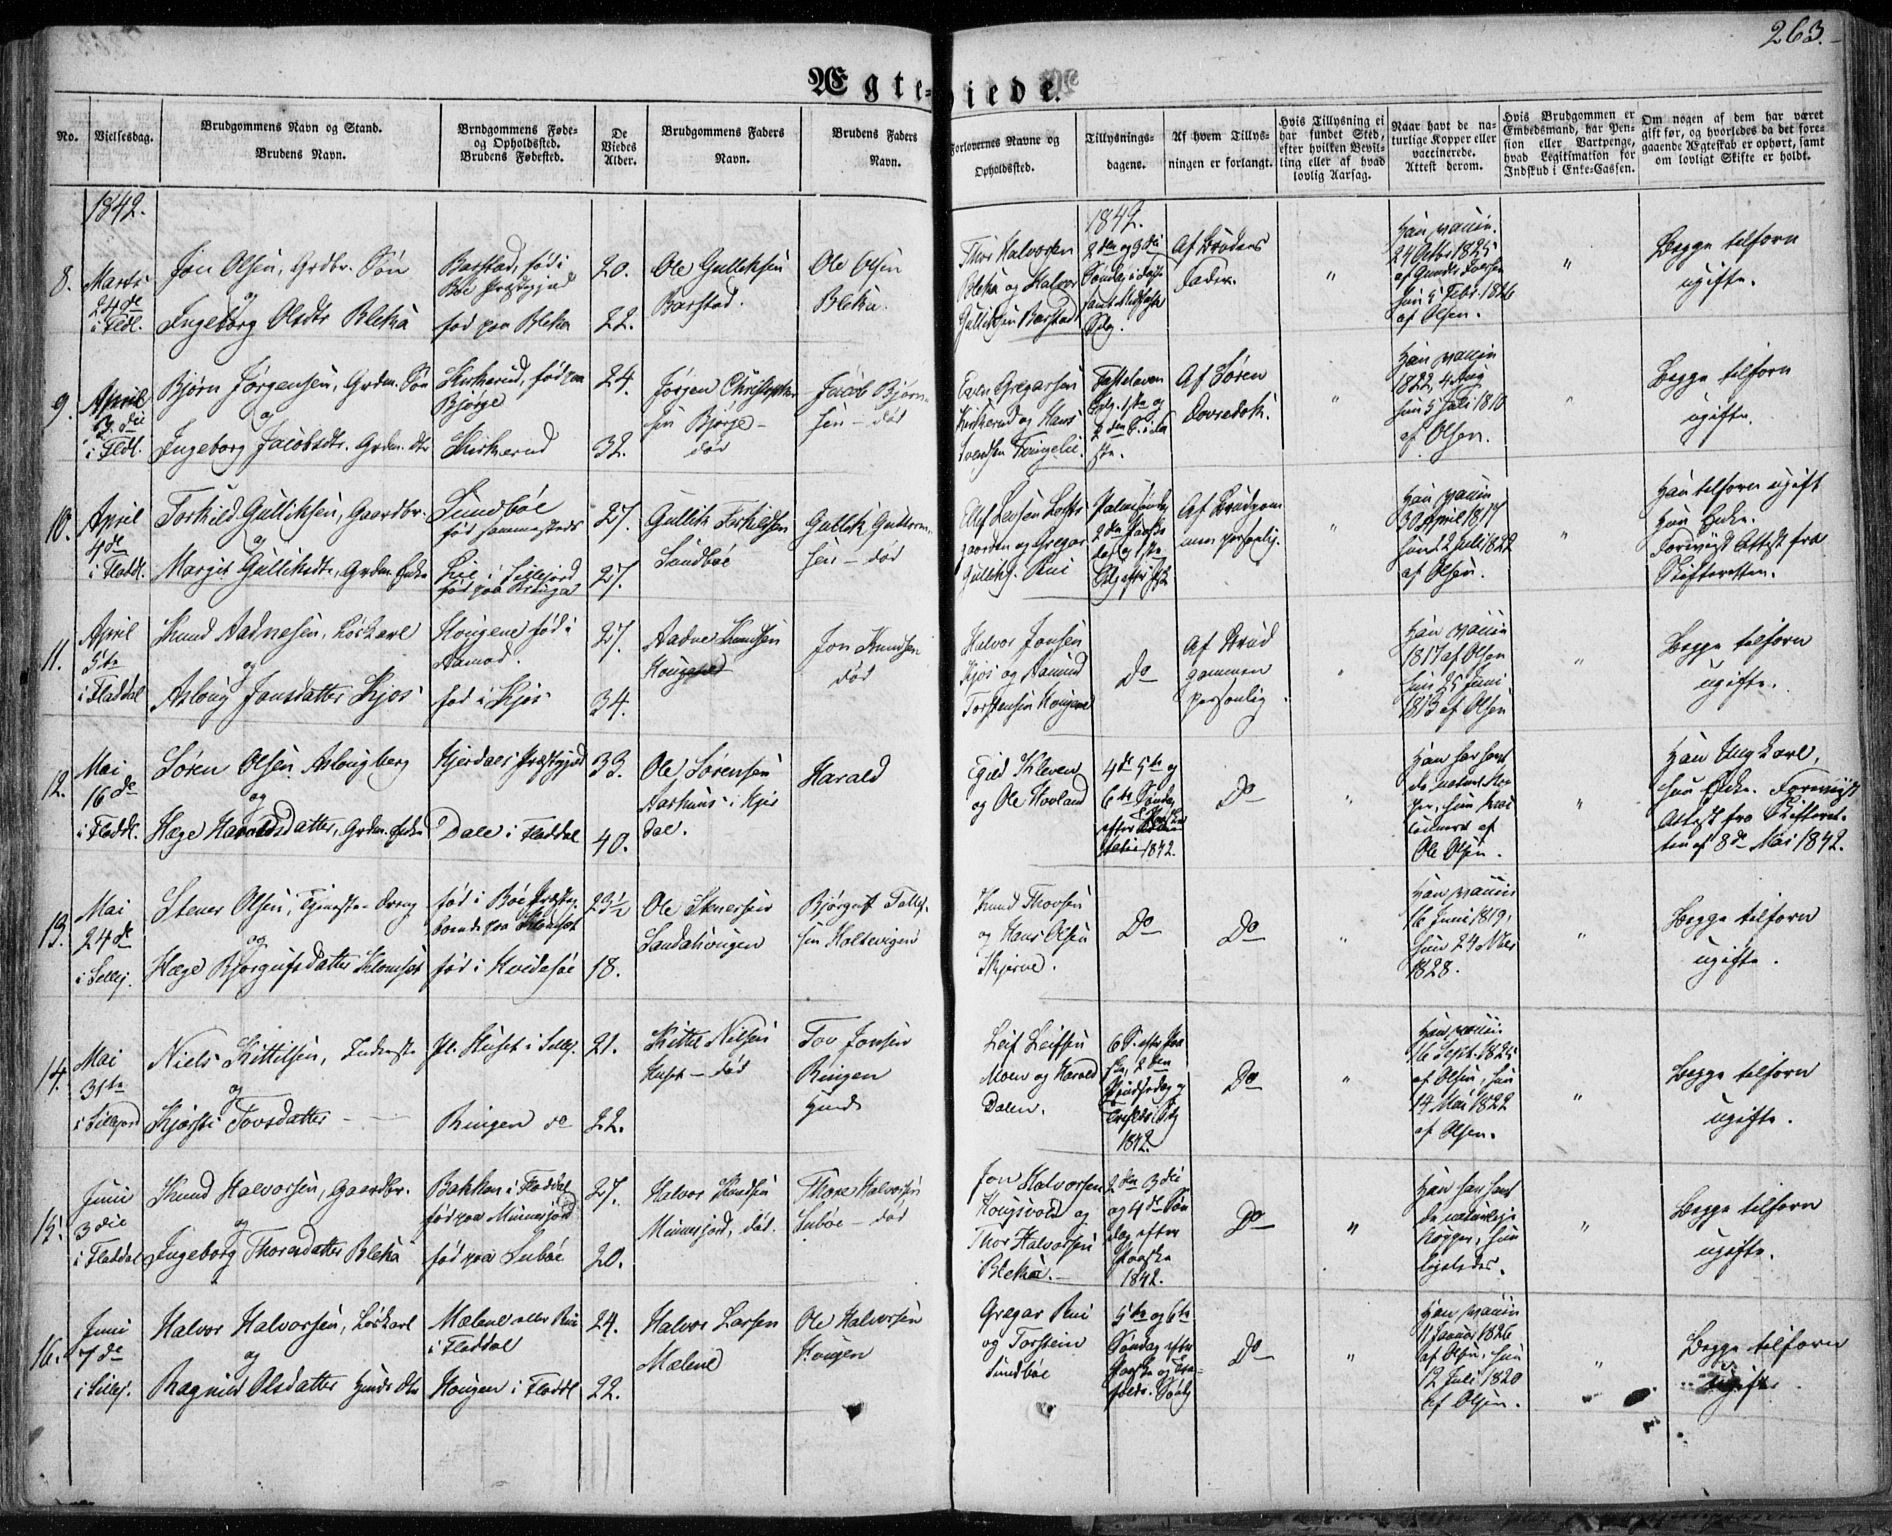 263.
Ægte-viede.
No.
Vielsesdag.
Brudgommens Navn og Stand.
Brudens Navn.
Brudgommens Føde-
og Opholdssted.
Brudens Fødested.
De
Viedes
Alder.
Brudgommens Faders
Navn.
Brudens Faders
Navn.
Forlovernes Navne og
Opholdssted.
Tillysnings-
dagene.
Af hvem Tillys-
ningen er forlangt.
Hvis Tillysning ei
har fundet Sted,
efter hvilken Bevil-
ling eller af hvad
lovlig Aarsag.
Naar havt de na-
turlige Kopper eller
vaccinerede.
Attest derom.
Hvis Brudgommen er
Embedsmand, har Pen-
sion eller Vartpenge,
hvad Legitimation for
Indskud i Enke-Cassen.
Om nogen af dem har været
gift før, og hvorledes da det fore-
gaaende Ægteskab er ophørt, samt
om lovligt Skifte er holdt.
1842.
8.
Marts
24de
i Fldl.
Jon Olsen, Grdbr. Søn
og
Ingeborg Olsdtr Bleka
Barstad, fød i
Bøe Præstegjeld
fød paa Bleka
20.
22.
Ole Gulliksen
Barstad.
Ole Olsen
Bleka.
Thor Halvorsen
Bleka og Halvor
Gulliksen Barstad
1842.
2den og 3die
Søndag i Faste
samt
Sdg.
Af Brudens
Fader.
"
Han vaccin.
24 Octbr 1825
af
hun 5 Febr. 1826
af Olsen.
"
Begge tilforn
ugifte.
9.
April
3die
i Fldl.
Bjørn Jørgensen, Grdm. Søn
og
Ingeborg Jacobsdtr. Grdm. dtr
Kirkerud, fød paa
Bjørge
Kirkerud
24.
32.
Jørgen Christophe-
sen Bjørge –
død
Jacob Bjørn-
sen – død
Even Gregarsen
Kirkerud og Hans
Svendsen
Fastelavn
Sdg. 1ste og
2den S. i Fa
ste.
Af Søren
"
Han vaccin
1822, 4 Aug
hun 5 Juli 1810
af Olsen.
"
Begge tilforn
ugifte.
10.
April
4de
i Fladdl.
Torkild Gulliksen, Gaardbr.
og
Margit Gulliksdtr, Grdm. Enke
Sundbøe
fød sammesteds
Lie i Sillejord
fød paa
27.
27.
Gullik Torkildsen
Sundbøe
Gullik Gutterm-
sen – død
og Gregar
Gulliks. Rui
Palmesøndag
2den Paaske
dag og 1ste
Sdg efter Pske
Af Brudgom
men personlig.
"
Han vaccin
30 April 1817
hun 2 Juli 1822
af Olsen.
"
Han tilforn ugift
Hun Enke.
Foreviist Attest fra
Skifteretten.
11.
April
5te
i Fladdal
Knud Aadnesen, Løskarl
og
Asloug Jonsdatter Kjos
Hougene fød i
Aamod.
fød i Kjos
27.
34.
Aadne Knudsen
Hougene
Jon Knudsen
død
Halvor Jonsen
Kjos og Aamund
Torstensen Hougene
Do
Af Brud
gommen
personlig.
"
Han vaccin
1817 af Olsen
hun 25 Juni
1813 af Olsen
"
Begge tilforn
ugifte.
12.
Mai
16de
i Fladdl.
Søren Olsen Aslougberg
og
Hæge Haraldsdatter, Grdm. Enke
Hjerdals Præstegjeld
Dale i Fladdal
33.
40.
Ole Sørensen
Aarhuus i Hjer
dal.
Harald
Egild Kleven
og Ole Hovland
4de 5te og
6te Søndag
efter Paaske
1842.
Do
"
Han har havt
de naturl. Kop
per, hun vac
cineret af
Ole Olsen.
"
Han Ungkarl,
hun Enke. Foreviist
Attest fra Skifteret-
ten af 8de Mai 1842.
13.
Mai
24de
i Sillej.
Stener Olsen, Tjeneste-Dreng
og
Hæge Bjørgufsdatter Klomset
fød i Bøe Præsteg.
boende paa Klomset
fød i Hvidesøe
23½
18.
Ole Stenersen
Sandaliveigen
Bjørguf Tollef-
sen Holtevigen
Knud Thovsen
og Hans Olsen
Skjerve.
Do
Do
"
Han vaccin
16 Juni 1819,
hun 24
1828.
"
Begge tilforn
ugifte.
14.
Mai
31te
i Sillejord
Niels Kittilsen, Inderste
og
Kjersti Tovsdatter –
Pl. Huset i Sillej.
Ringen do
21.
22.
Kittel Nilsen
Huset – død
Tov Jonsen
Ringen
Huusmd.
Leif Leifsen
Moen og Harald
Dalen.
6 S. efter Paa
ske, 2den
Pindsedag og
Trefoldi. Sdg
1842.
Do
"
Han vaccin
16 Sept. 1825
af Olsen, hun
14 Mai 1822
af Olsen.
"
Begge tilforn
ugifte.
15.
Juni
3die
i Fladdal
Knud Halvorsen, Gaardbr.
og
Ingeborg Thorsdatter Bleka
Bakken i Fladdal
fød paa Minnesjord
fød paa Lubøe
27.
20.
Halvor Knudsen
Minnesjord, død.
Thore Halvorsen
Lubøe – død
Jon Halvorsen
Hougsvold og
Thor Halvorsen
Bleka. –
2den 3die
og 4de Søn
dag efter
Paaske
1842.
Do
"
Han har havt
de naturlige
Kopper, hun
ligeledes.
"
Begge tilforn
ugifte.
16.
Juni
7de
i Sillej.
Halvor Halvorsen, Løskarl
og
Ragnild Olsdatter Huusmds dtr
Mælene eller Rui
i Fladdal
Hougen i Fladdl
24.
22.
Halvor Larsen
Mælene
Ole Halvorsen
Hougen
Gregar Rui
og Torstein
Sundbøe
5te og 6te
Søndag efter
Paaske og Tre-
folds. Søndg
Do
"
Han vaccin
11 Januar 1826
af Olsen, hun
12 Juli 1820
af Olsen.
"
Begge tilforn
ugifte.